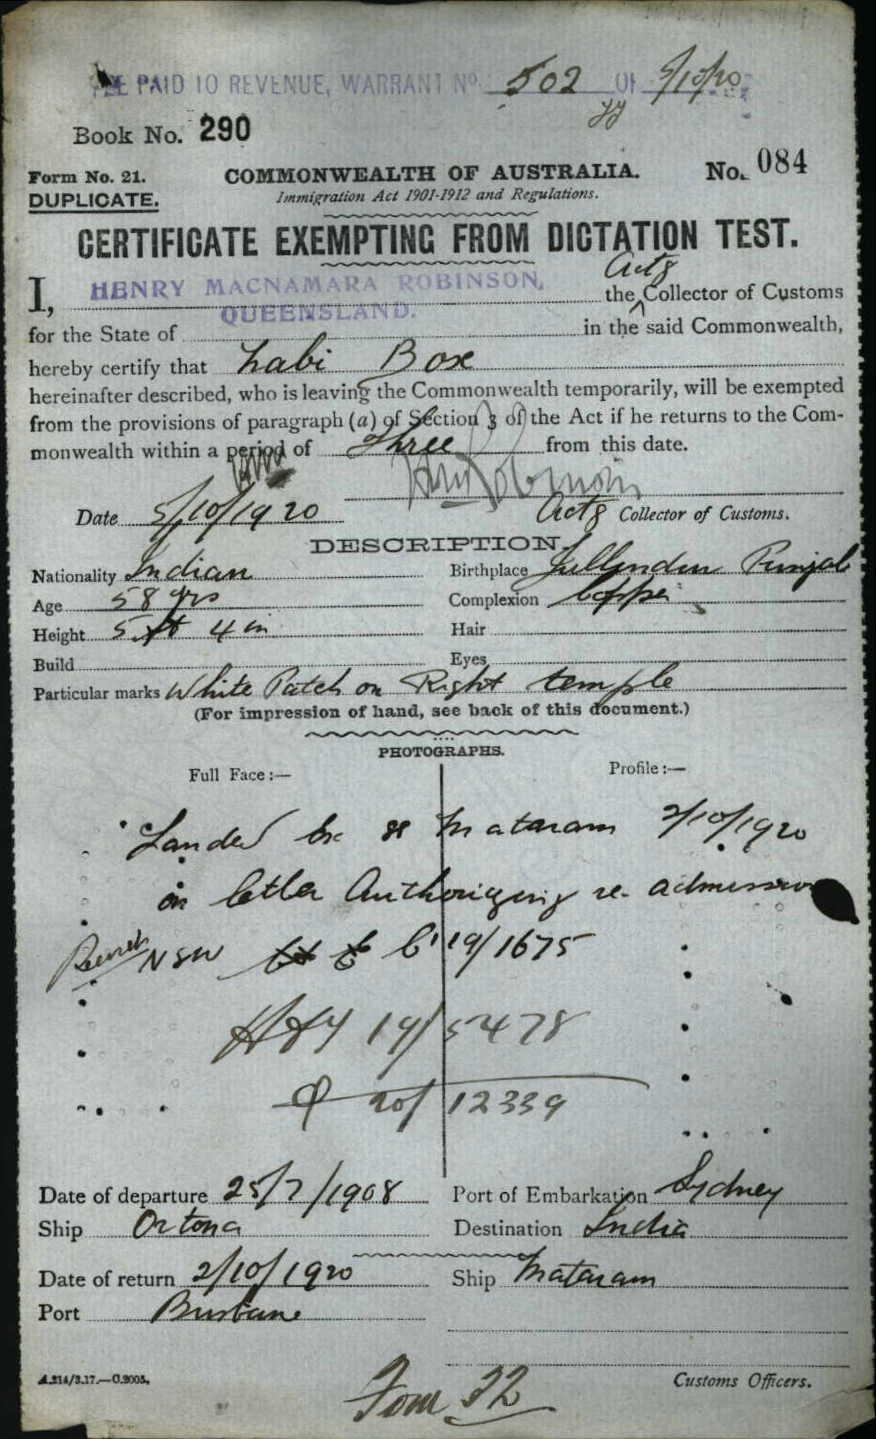 FEE PAID TO REVENUE, WARRANT No. 502 OF 5/10/20
Book No. 290
Form No. 21. COMMONWEALTH OF AUSTRALIA. No. 084
DUPLICATE. Immigration Act 1901-1912 and Regulations.
CERTIFICATE EXEMPTING FROM DICTATION TEST.
Actg
I, HENRY MACNAMARA ROBINSON, the Collector of Customs
for the State of QUEENSLAND. in the said Commonwealth,
hereby certify that Labi Box
hereinafter described, who is leaving the Commonwealth temporarily, will be exempted
from the provisions of paragraph (a) of Section 3 of the Act if he returns to the Com-
monwealth within a period of Three from this date.
Date 5/10/1920 Actg Collector of Customs.
DESCRIPTION
Nationality Indian Birthplace Jullundur Punjab
Age 58 yrs Complexion Copper
Height 5 ft 4 in Hair
Build Eyes
Particular marks White Patch on Right temple
(For impression of hand, see back of this document.)
PHOTOGRAPHS.
Full Face:— Profile:—
Landed ex ss Mataram 2/10/1920
on letter Authorizing re-admission
NSW C 19/1675
H&T 19/5478
Q 20/12339
Date of departure 25/7/1908 Port of Embarkation Sydney
Ship Ortona Destination India
Date of return 2/10/1920 Ship Mataram
Port Brisbane
A.214/3.17.—C.2005. Customs Officers.
Form 22